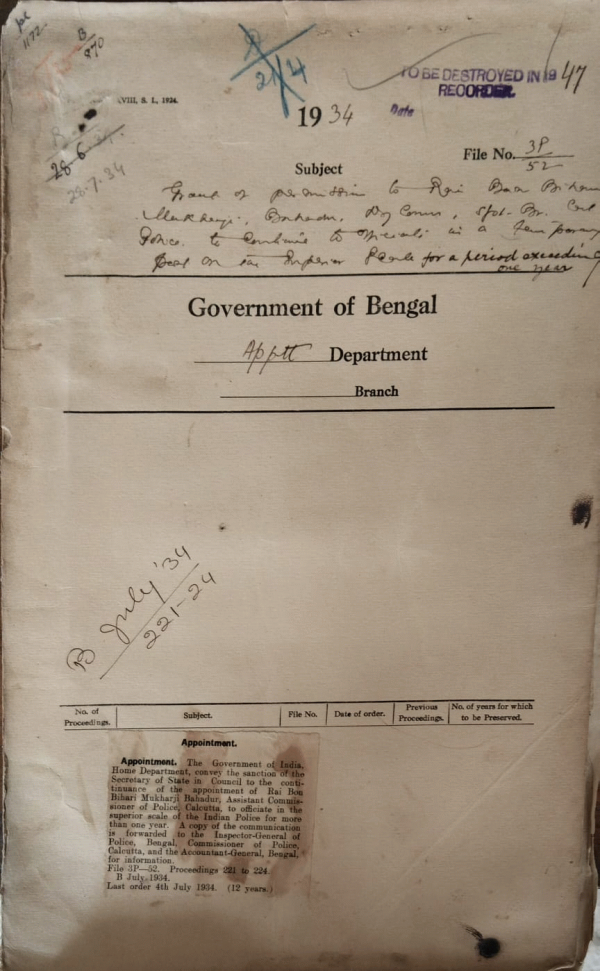 1172
B
870
21/4
TO BE DESTROYED IN 1947
RECORDER.
Date
XVIII, S. I., 1934.
1934
28-6
28.7.34
File No. 3P/52
Subject
Grant of permission to Rai Bon Bihari
Mukharji, Bahadur, Dy Commr, Spl. Br. Cal
Police to continue to officiate in a temporary
post on the Superior Scale for a period exceeding
one year
Government of Bengal
Apptt Department
Branch
B July '34
221-24
No. of Proceedings. Subject. File No. Date of order. Previous Proceedings. No. of years for which to be Preserved.
Appointment.
Appointment. The Government of India,
Home Department, convey the sanction of the
Secretary of State in Council to the conti-
tinuance of the appointment of Rai Bon
Bihari Mukharji Bahadur, Assistant Commis-
sioner of Police, Calcutta, to officiate in the
superior scale of the Indian Police for more
than one year. A copy of the communication
is forwarded to the Inspector-General of
Police, Bengal, Commissioner of Police,
Calcutta, and the Accountant-General, Bengal,
for information.
File 3P—52. Proceedings 221 to 224.
B July, 1934.
Last order 4th July 1934. (12 years.)